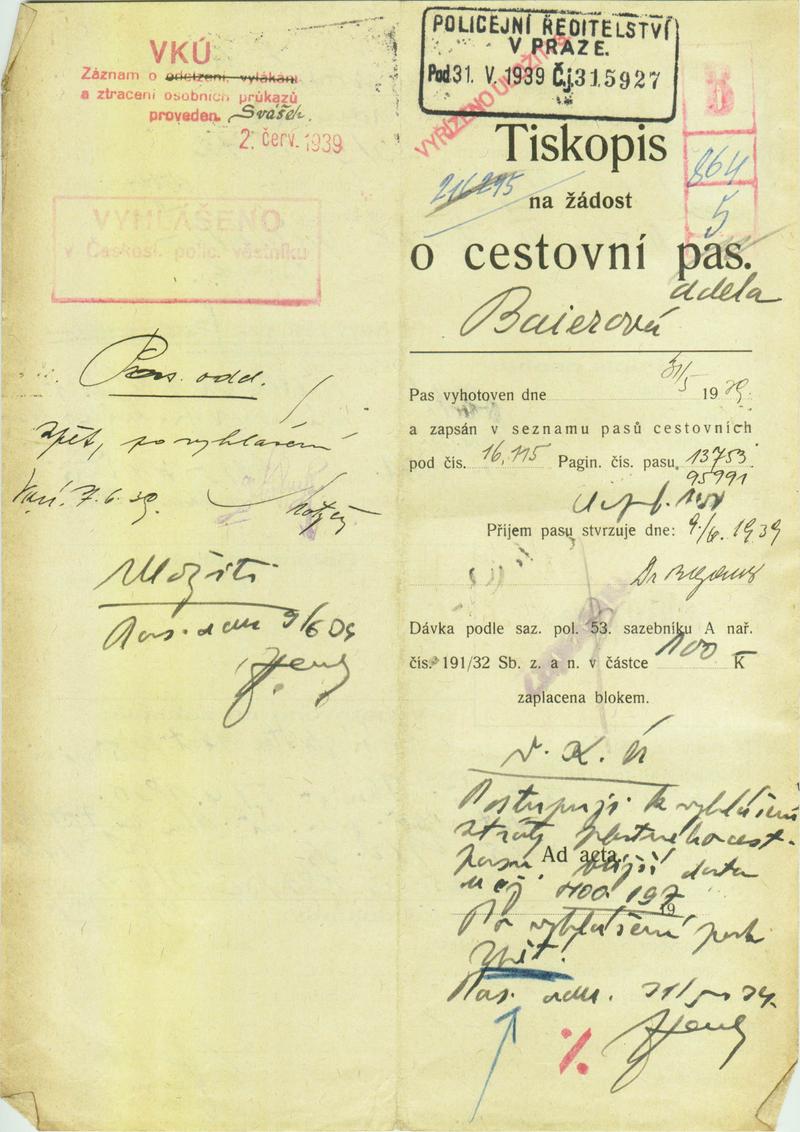 VKÚ
Záznam o odcizení, vylákání
a ztracení osobních průkazů
proveden. Svášek.
2. červ. 1939
VYHLÁŠENO
v Českosl. polic. věstníku
Pas. odd.
Zpět, po vyhlášení
7. 6. 39.
Uložiti
Pas. odd. 9/6 39
POLICEJNÍ ŘEDITELSTVÍ
V PRAZE.
Pod 31. V. 1939 Č.j. 315927
VYŘÍZENO ULOŽIT
D
864
5
216295
Tiskopis
na žádost
o cestovní pas.
Baierová Adela
Pas vyhotoven dne 31/5 1939
a zapsán v seznamu pasů cestovních
pod čís. 16,115 Pagin. čís. pasu 13753
95991
Příjem pasu stvrzuje dne: 9/6. 1939
Dr
Dávka podle saz. pol. 53. sazebníku A nař.
čís. 191/32 Sb. z. a n. v částce 100 K
zaplacena blokem.
V. K. Ú
Postupuji k vyhlášení
ztráty platného cest.
pasu. Bližší data
Ad acta.
na čj 400.197
19
Po vyhlášení pak
zpět!
Pas. odd. 31/5 39.